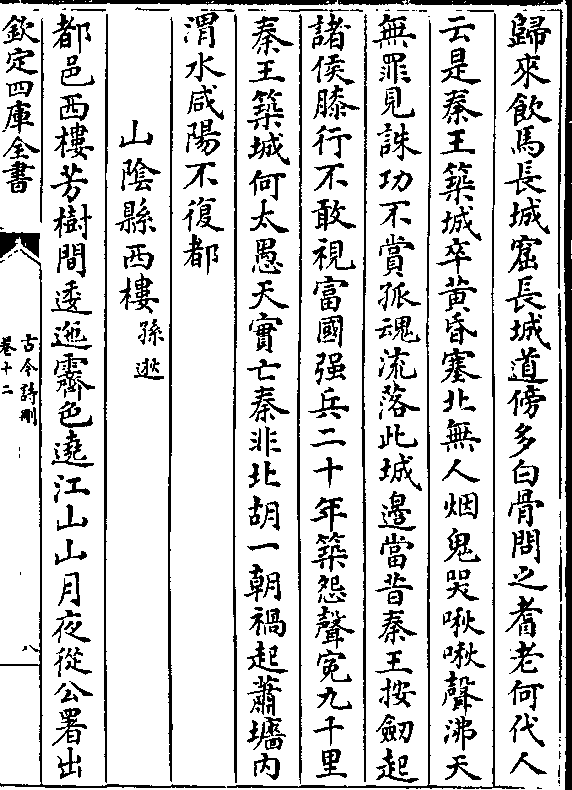 歸來飲馬長城窟長城道傍多白骨問之耆老何代人
云是秦王築城卒黃昏塞北無人烟鬼哭啾啾聲沸天
無罪見誅功不賞孤魂流落此城邊當昔秦王按劒起
諸侯膝行不敢視富國强兵二十年築怨聲寃九千里
秦王築城何太愚天實亡秦非北胡一朝禍起蕭墻内
渭水咸陽不復都
山陰縣西樓 孫逖
都邑西樓芳樹間逶迤霽色遶江山山月夜從公署出
欽定四庫全書
古今詩刪
卷十二
八